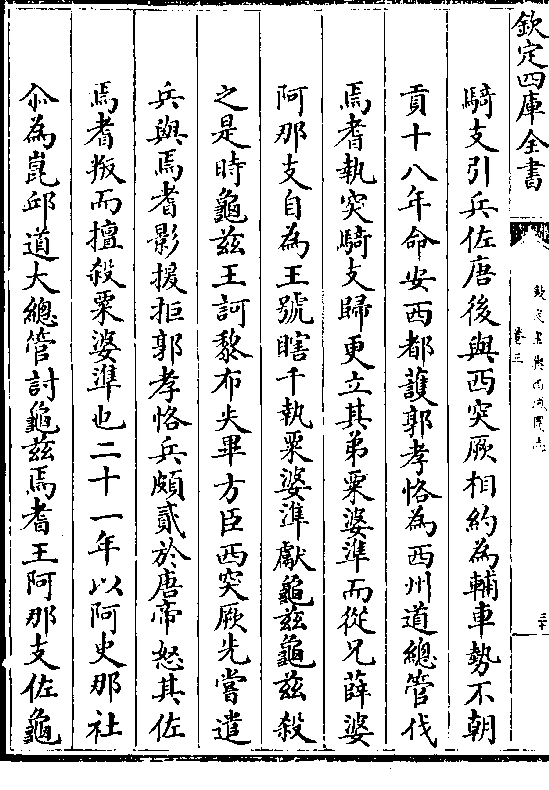 欽定四庫全書
欽定皇輿西域圖志
卷三
三十
騎支引兵佐唐後與西突厥相約為輔車勢不朝
貢十八年命安西都護郭孝恪為西州道總管伐
焉耆執突騎支歸更立其弟栗婆準而從兄薛婆
阿那支自為王號瞎干執栗婆準獻龜兹龜兹殺
之是時龜兹王訶黎布失畢方臣西突厥先嘗遣
兵與焉耆影援拒郭孝恪兵頗貳於唐帝怒其佐
焉耆叛而擅殺栗婆準也二十一年以阿史那社
尒為崑邱道大總管討龜兹焉耆王阿那支佐龜